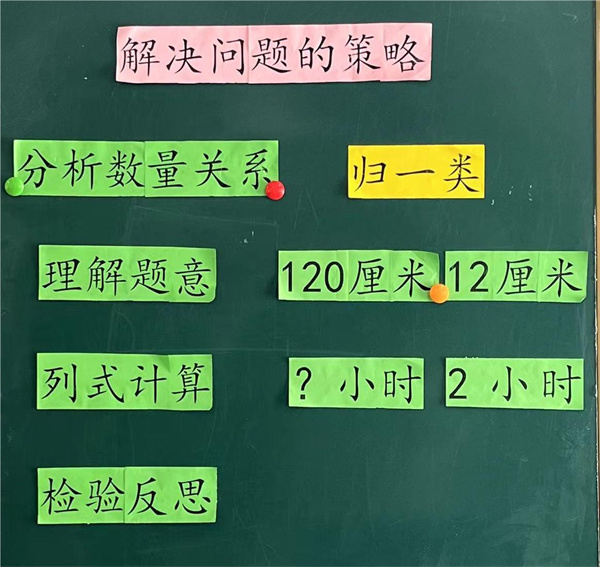 解决问题的策略
分析数量关系 归一类
理解题意 120厘米 12厘米
列式计算 ？小时 2小时
检验反思